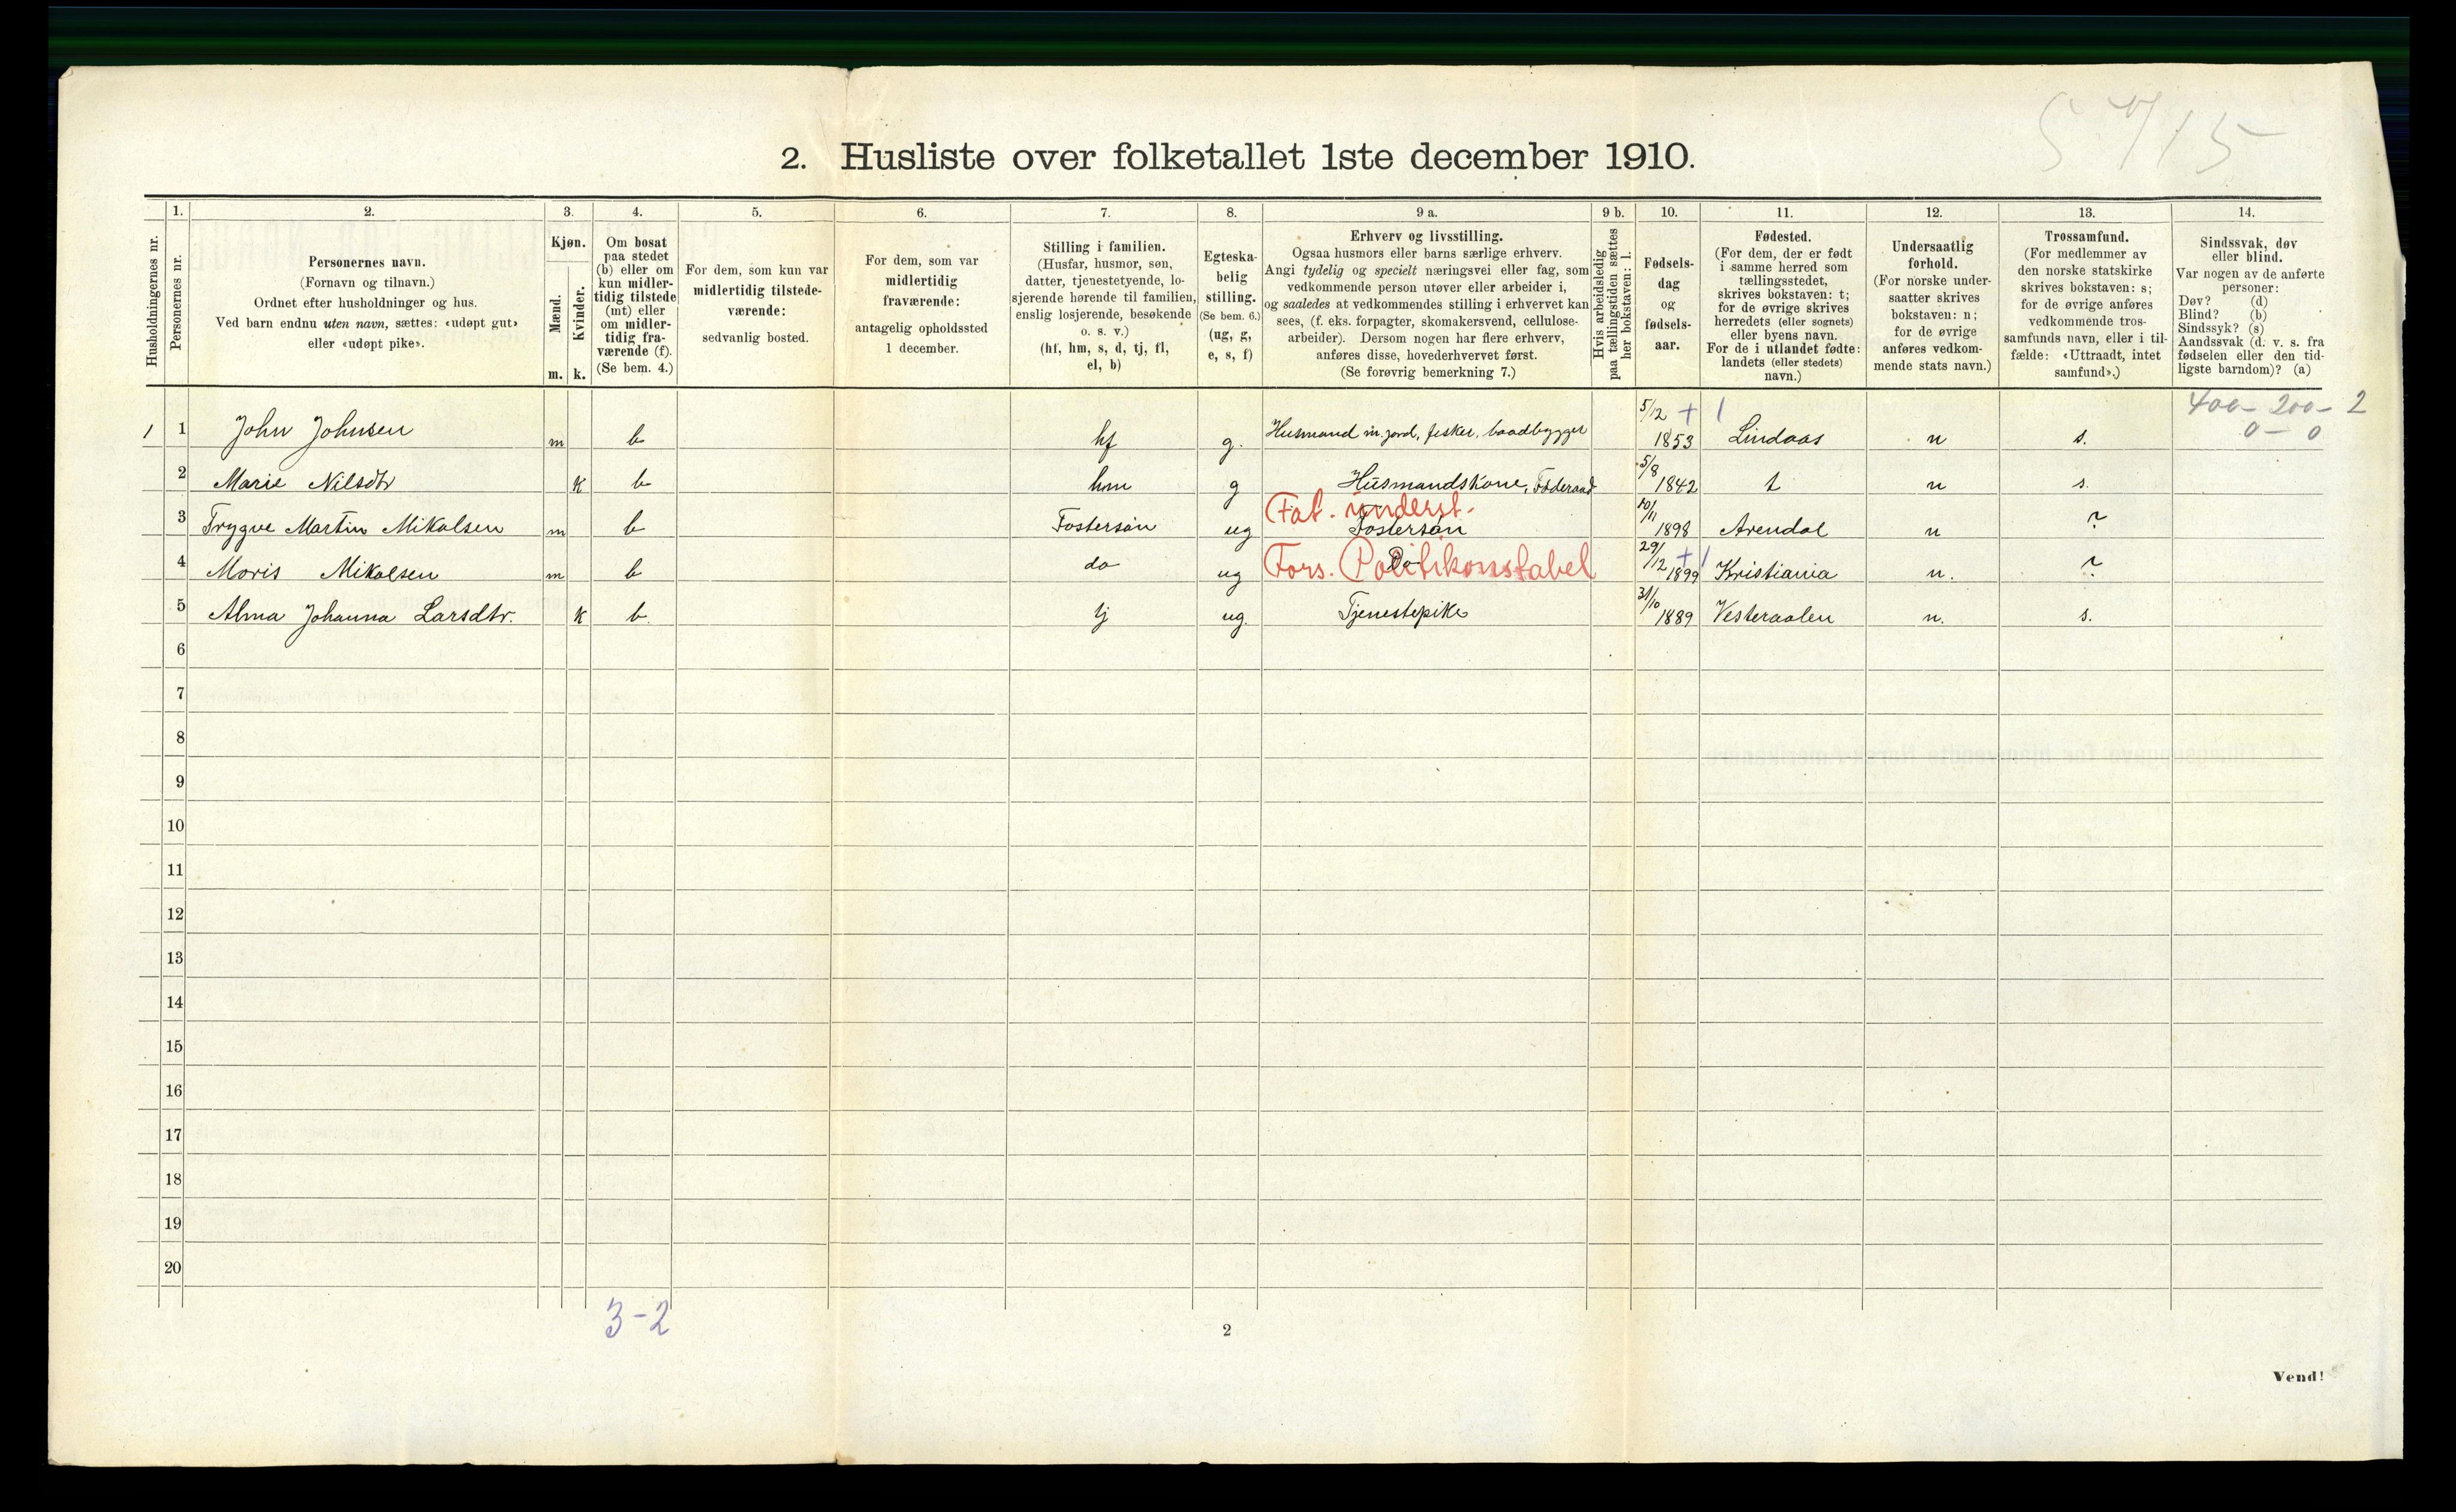 2. Husliste over folketallet 1ste december 1910.
Husholdningernes nr.
1.
Personernes nr.
2.
Personernes navn.
(Fornavn og tilnavn.)
Ordnet efter husholdninger og hus.
Ved barn endnu uten navn, sættes: «udøpt gut»
eller «udøpt pike».
3.
Kjøn.
Mænd.
Kvinder.
m. k.
4.
Om bosat
paa stedet
(b) eller om
kun midler-
tidig tilstede
(mt) eller
om midler-
tidig fra-
værende (f).
(Se bem. 4.)
5.
For dem, som kun var
midlertidig tilstede-
værende:
sedvanlig bosted.
6.
For dem, som var
midlertidig
fraværende:
antagelig opholdssted
1 december.
7.
Stilling i familien.
(Husfar, husmor, søn,
datter, tjenestetyende, lo-
sjerende hørende til familien,
enslig losjerende, besøkende
o. s. v.)
(hf, hm, s, d, tj, fl,
el, b)
8.
Egteska-
belig
stilling.
(Se bem. 6.)
(ug, g,
e, s, f)
9 a.
Erhverv og livsstilling.
Ogsaa husmors eller barns særlige erhverv.
Angi tydelig og specielt næringsvei eller fag, som
vedkommende person utøver eller arbeider i,
og saaledes at vedkommendes stilling i erhvervet kan
sees, (f. eks. forpagter, skomakersvend, cellulose-
arbeider). Dersom nogen har flere erhverv,
anføres disse, hovederhvervet først.
(Se forøvrig bemerkning 7.)
9 b.
Hvis arbeidsledig
paa tællingstiden sættes
her bokstaven: l.
10.
Fødsels-
dag
og
fødsels-
aar.
11.
Fødested.
(For dem, der er født
i samme herred som
tællingsstedet,
skrives bokstaven: t;
for de øvrige skrives
herredets (eller sognets)
eller byens navn.
For de i utlandet fødte:
landets (eller stedets)
navn.)
12.
Undersaatlig
forhold.
(For norske under-
saatter skrives
bokstaven: n;
for de øvrige
anføres vedkom-
mende stats navn.)
13.
Trossamfund.
(For medlemmer av
den norske statskirke
skrives bokstaven: s;
for de øvrige anføres
vedkommende tros-
samfunds navn, eller i til-
fælde: «Uttraadt, intet
samfund».)
14.
Sindssvak, døv
eller blind.
Var nogen av de anførte
personer:
Døv? (d)
Blind? (b)
Sindssyk? (s)
Aandssvak (d. v. s. fra
fødselen eller den tid-
ligste barndom)? (a)
400 – 200 – 2
0 – 0
1 1 John Johnsen m b hf g. Husmand m. jord, fisker, baadbygger 5/12 + 1853 Lindaas n s.
2 Marie Nilsdtr k b hm g Husmandskone, Føderaad 5/8 1842 t n s.
Fat. underst.
3 Trygve Martin Mikalsen m b Fostersøn ug Fostersøn 10/11 1898 Arendal n ?
4 Moris Mikalsen m b do ug Do 29/12 + 1899 Kristiania n. ?
Fors. Politikonstabel
5 Alma Johanna Larsdtr. k b tj ug. Tjenestepike 31/10 1889 Vesteraalen n. s.
6
7
8
9
10
11
12
13
14
15
16
17
18
19
20
3-2
2
Vend!